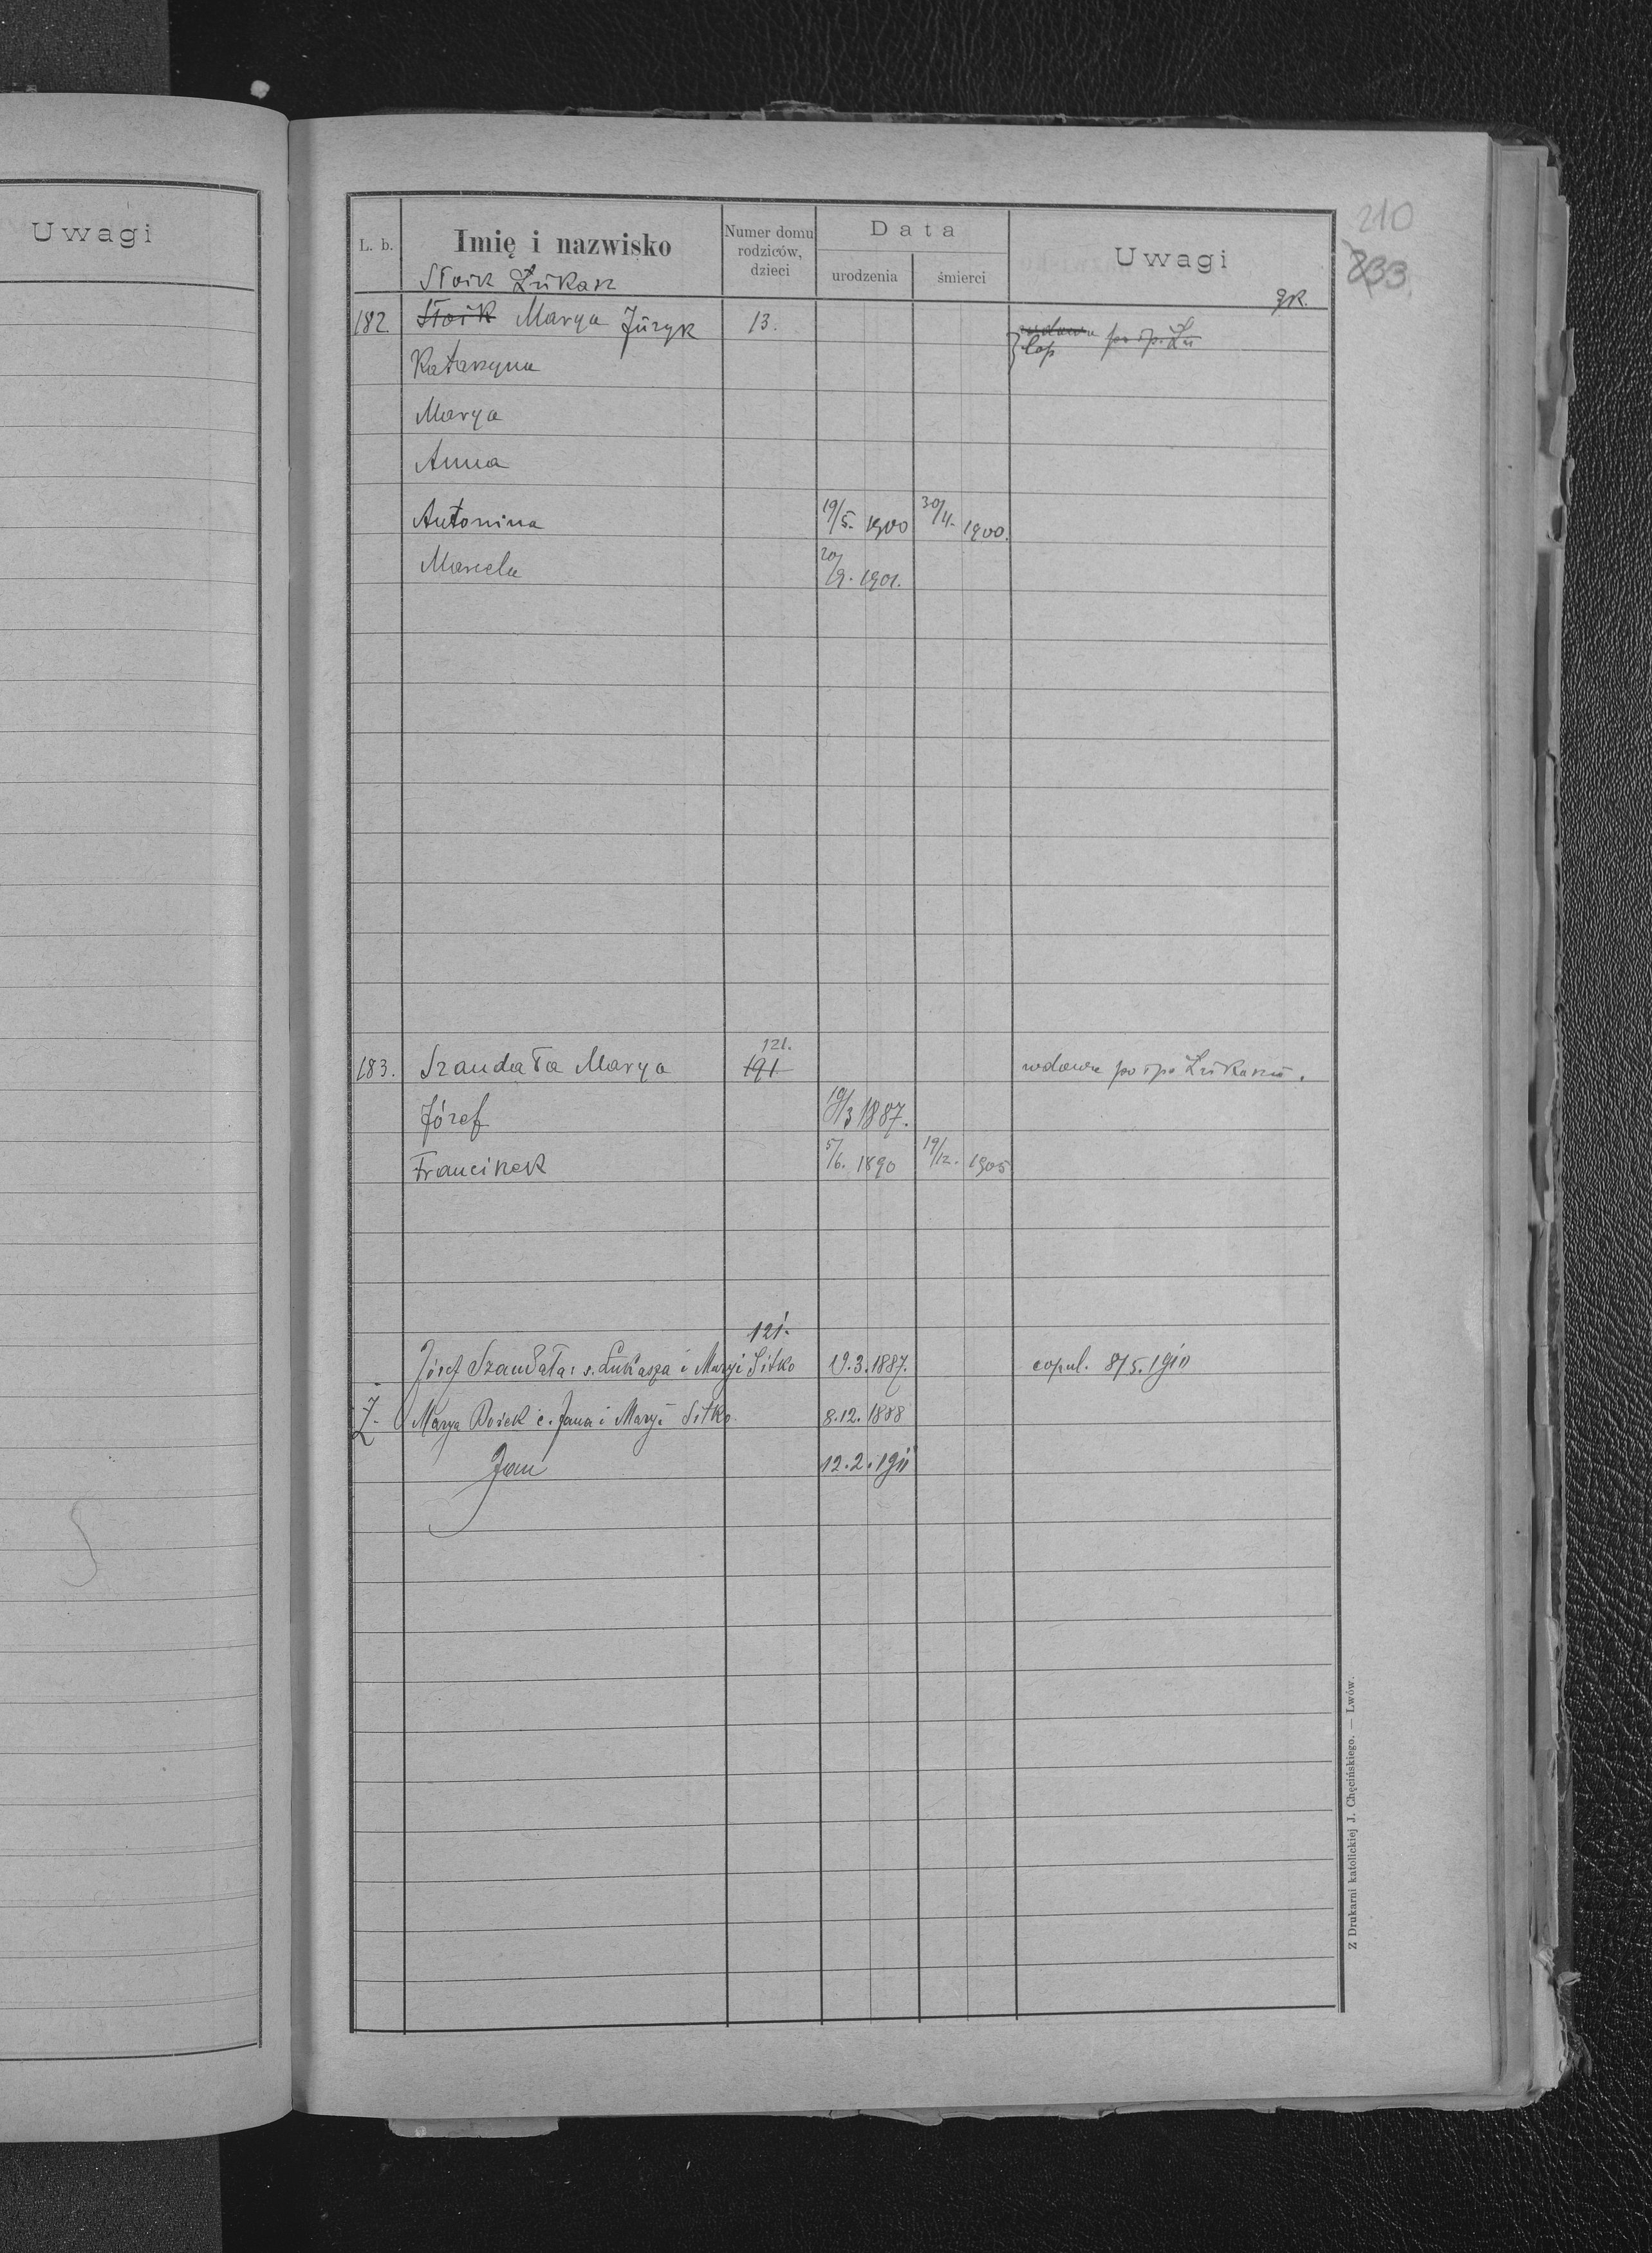 Uwagi
210
833.
L. b. Imię i nazwisko Numer domu rodziców, dzieci Data urodzenia śmierci Uwagi
Słoik Łukasz
gk.
182 Słoik Marya Jüzyk 13. wdowa po śp. Łu
Katarzyna
Marya
Anna
Antonina 19/5. 1900 30/4. 1900.
Marcela 20/9. 1901.
183. Szandała Marya 121. 191 wdowa po śp. Łukaszu.
Józef 19/3 1887.
Franciszek 5/6. 1890 19/12. 1905
121.
Józef Szandała s. Łukasza i Maryi Sitko 19.3.1887. copul. 8/5.1911
Marya Dosek c. Jana i Maryi Sitko. 8.12.1888
Jan 12.2.1911
Z Drukarni katolickiej J. Chęcińskiego. — Lwów.